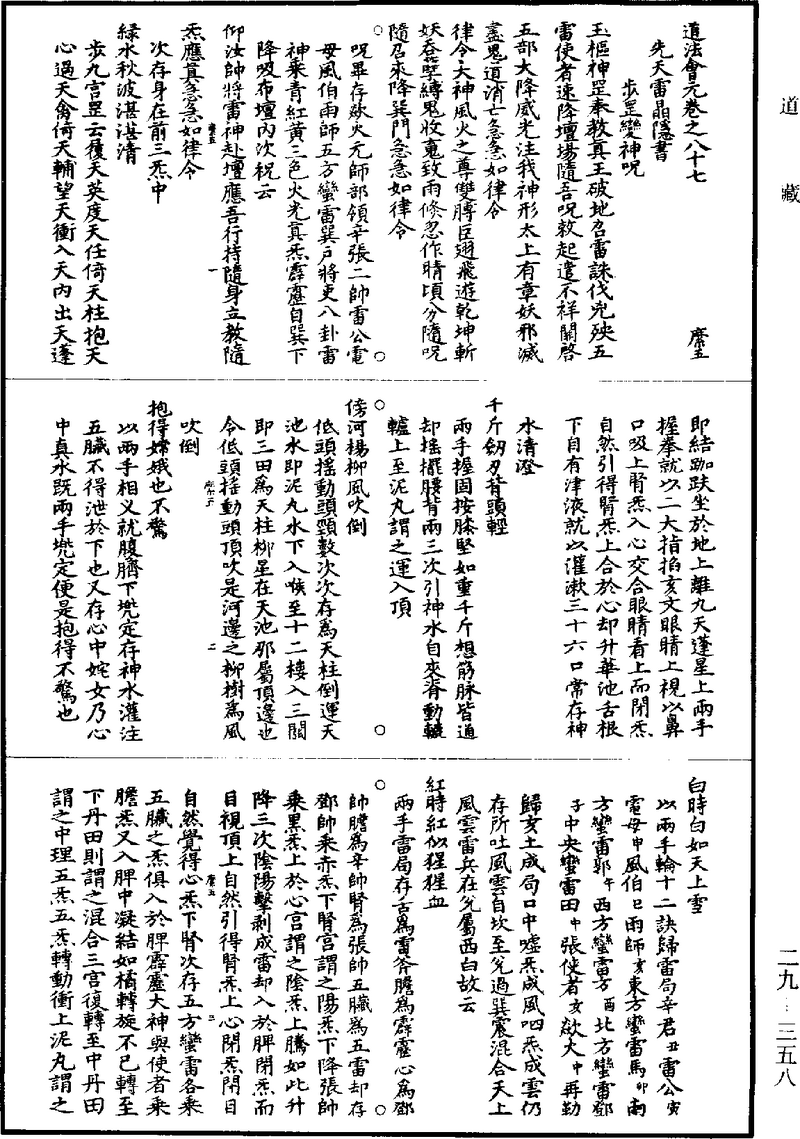 道藏
二九—三五八
道法會元卷之八十七　席五
先天雷晶隱書
步罡變神呪
玉樞神罡奉教真王破地召雷誅伐兇殃五
雷使者速降壇場隨吾呪敕起遣不祥開啓
五部大降威光注我神形太上有章妖邪滅
盡鬼道消亡急急如律令
律令大神風火之尊雙膊臣翅飛遊乾坤斬
妖吞孽縛鬼收䰟致雨倏忽作晴頃分隨呪
隨召來降巽門急急如律令
呪畢存歘火元帥部領辛張二帥雷公電
母風伯雨師五方蠻雷巽户將吏八卦雷
神乘青紅黄三色火光真炁霹靂自巽下
降吸布壇内次祝云
仰汝帥將雷神赴壇應吾行持隨身立教隨
炁應真急急如律令
次存身在前三炁中
緑水秋波湛湛清
步九宫罡云履天英度天任倚天柱抱天
心過天禽倚天輔望天衝入天内出天蓬
即結跏趺坐於地上離九天蓬星上兩手
握拳就以二大指掐亥文眼睛上視以鼻
口吸上腎炁入心交合眼睛看上而閉炁
自然引得腎炁上合於心却升華池舌根
下自有津液就以灌漱三十六口常存神
水清澄
千斤劒刃背頭輕
兩手握固按膝堅如重千斤想筋脉皆通
却摇擺腰背兩三次引神水自夾脊動轆
轤上至泥丸謂之運入頂
傍河楊柳風吹倒
低頭摇動頭頸數次次存爲天柱倒運天
池水即泥丸水下入喉至十二樓入三關
即三田爲天柱柳星在天池邪屬頂邊也
令低頭摇動頭頂吹是河邊之柳樹爲風
吹倒
抱得嫦娥也不驚
以兩手相叉就腹臍下兜定存神水灌注
五臟不得泄於下也又存心中姹女乃心
中真水既兩手兜定便是抱得不驚也
白時白如天上雪
以兩手輪十二訣歸雷局辛君丑雷公寅
電母申風伯巳雨師亥東方蠻雷馬卯南
方蠻雷郭午西方蠻雷方酉北方蠻雷鄧
子中央蠻雷田中張使者亥歘火中再勒
歸亥土成局口中噓炁成風呬炁成雲仍
存所吐風雲自坎至兌過巽震混合天上
風雲雷兵在兌屬西白故云
紅時紅似猩猩血
兩手雷局存舌爲雷斧膽爲霹靂心爲鄧
帥膽爲辛帥腎爲張帥五臟爲五雷却存
鄧帥乘赤炁下腎宫謂之陽炁下降張帥
乘黑炁上於心宫謂之陰炁上騰如此升
降三次陰陽擊剥成雷却入於脾閉炁而
目視頂上自然引得腎炁上心閉炁閉目
自然覺得心炁下腎次存五方蠻雷各乘
五臟之炁俱入於脾霹靂大神與使者乘
膽炁又入脾中凝結如橘轉旋不已轉至
下丹田則謂之混合三宫復轉至中丹田
謂之中理五炁五炁轉動衝上泥丸謂之